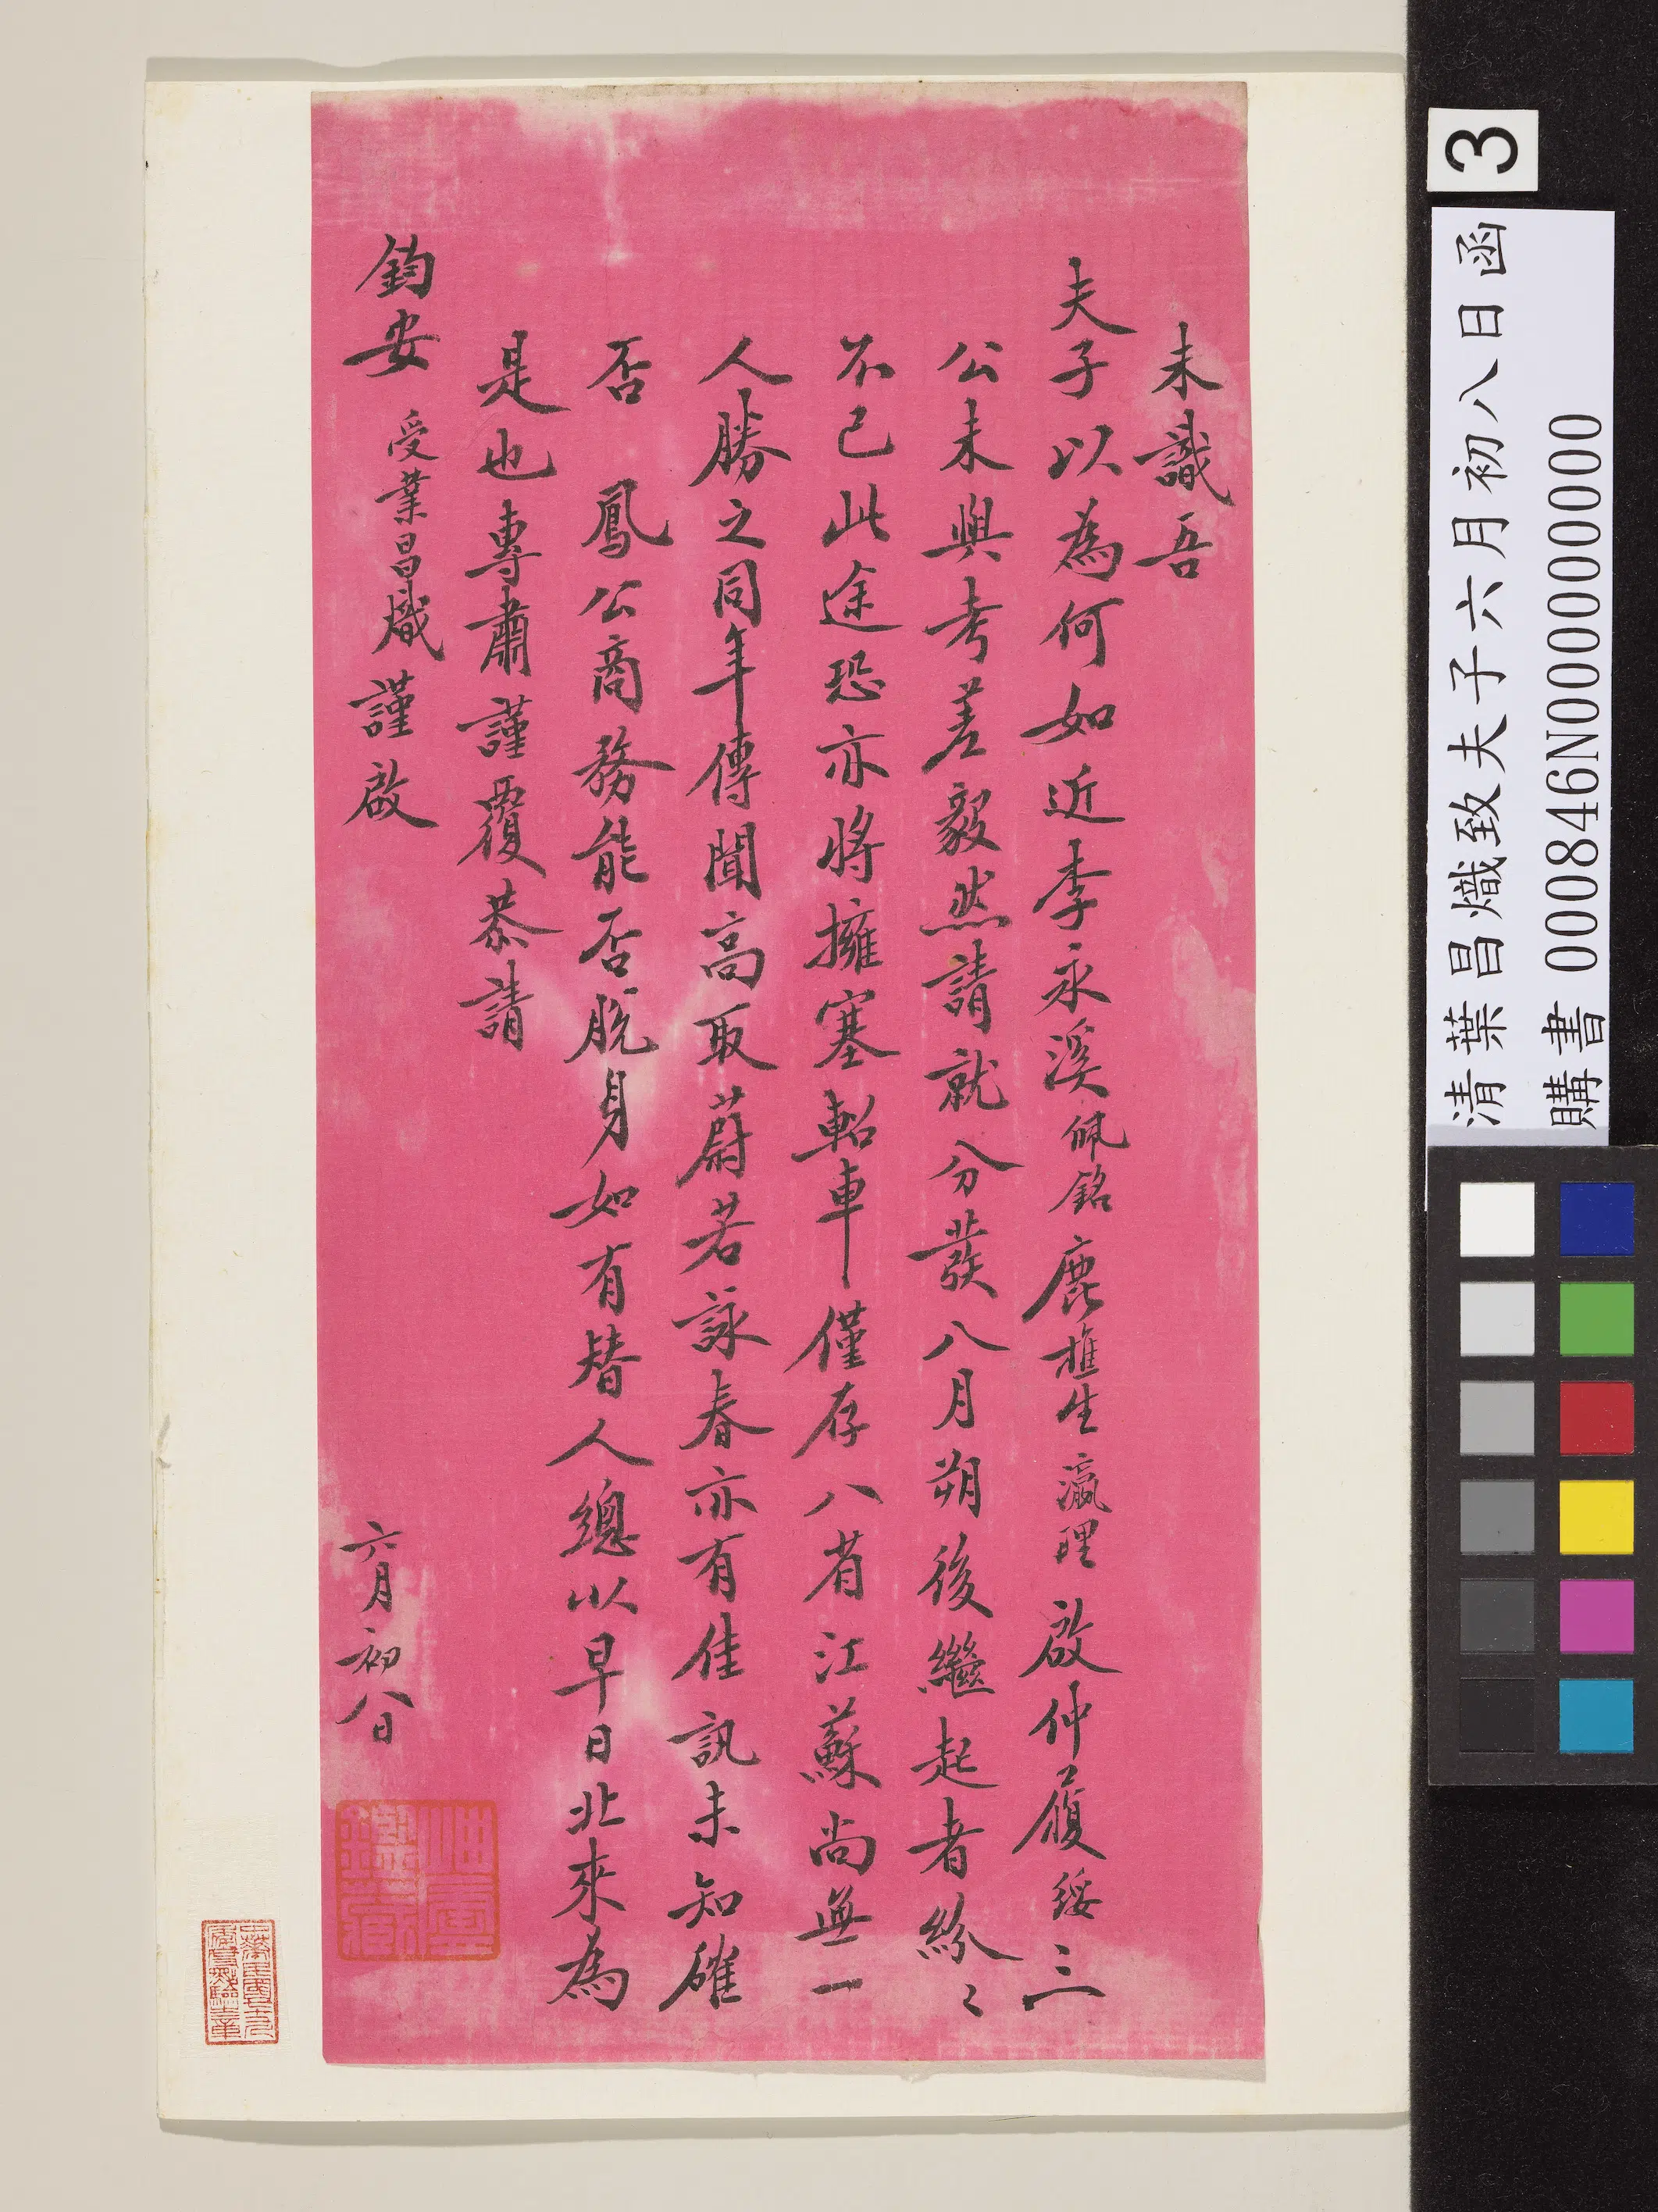 未識吾
夫子以為何如近李永溪佩銘鹿樵生瀛理啟仲履綏三
公未與考差毅然請就分發八月朔後繼起者紛〻
不已此途恐亦將擁塞軺車僅存八省江蘇尚無一
人勝之同年傳聞高取蔚若詠春亦有佳訊未知確
否 鳳公商務能否脫身如有替人總以早日北來為
是也專肅謹覆恭請
鈞安 受業昌熾謹啟 六月初八日
3
清葉昌熾致夫子六月初八日函
購書 000846N000000000